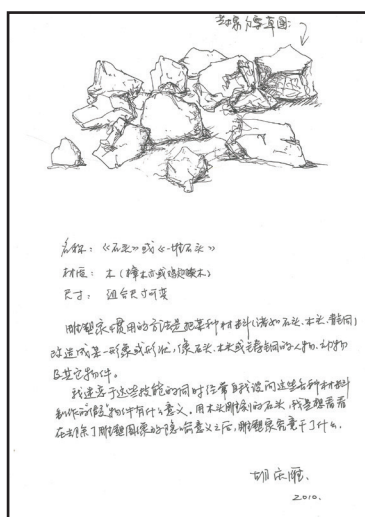 草图:
名称:《石头》或《一堆石头》
材质: 木(樟木或鸡翅膀木)
尺寸: 组合尺寸可变
雕塑家惯用的方法是把某种材料(诸如石头、木头、青铜)
改造成某一形象或形状,像石头、木头或青铜的人物、动物
及其它物件。
我迷恋于这些技能的同时经常自我设问这些各种材料
制作的“假”物件有什么意义。用木头雕刻的石头,我是想看看
在去除了雕塑图像的隐喻意义之后,雕塑家究竟干了什么。
胡庆雁.
2010.